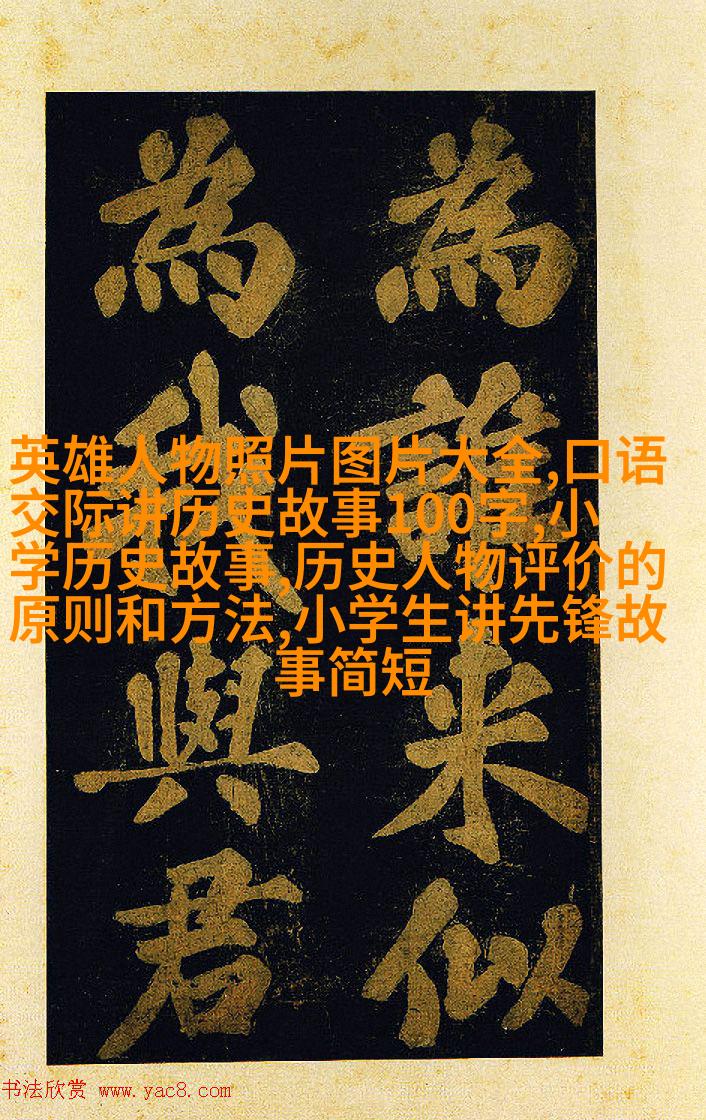 為誰来似
為我與君
英雄人物照片图片大全,口语
交际讲历史故事100字,小
学历史故事,历史人物评价的
原则和方法,小学生讲先锋故
事简短
书法欣赏 www.yac8.com